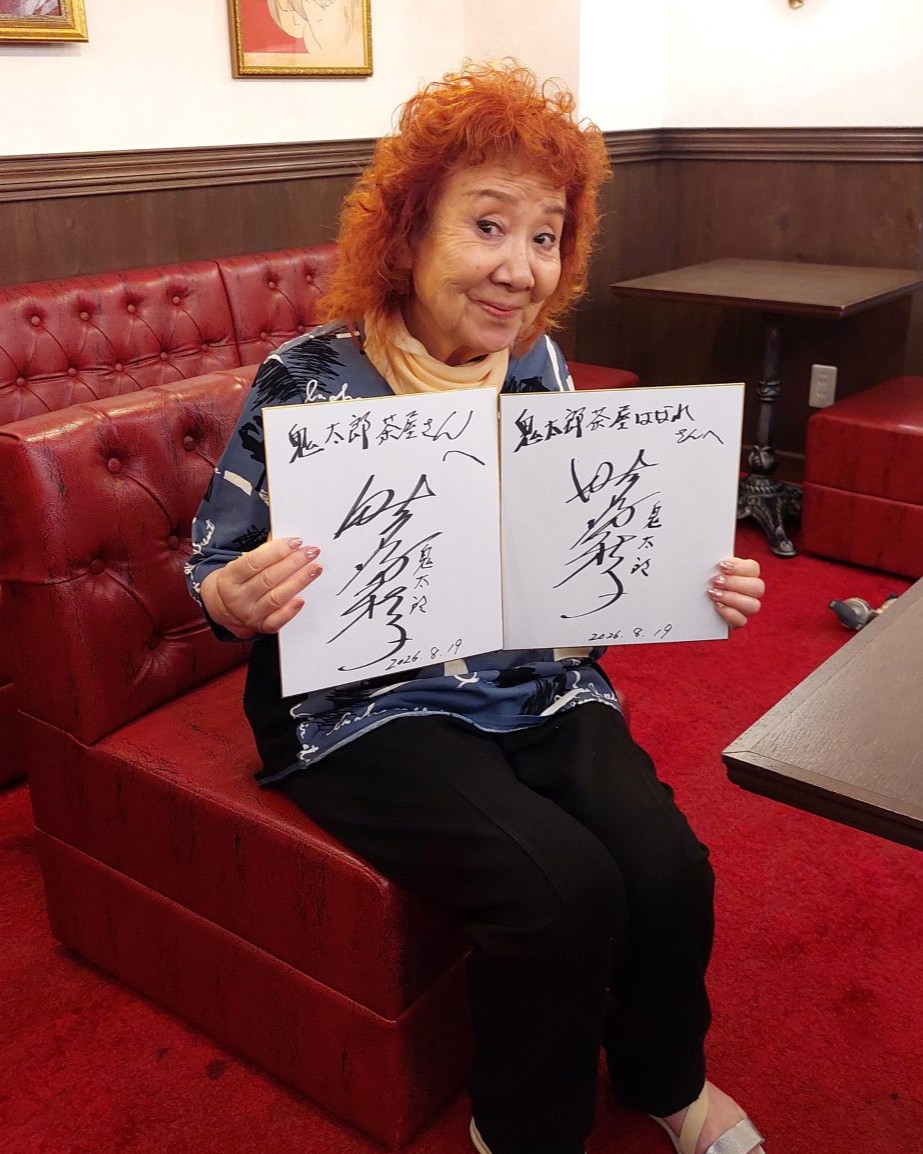 鬼太郎茶屋さん
へ
野沢雅子
鬼太郎
2026.8.19
鬼太郎茶屋はなれ
さんへ
野沢雅子
鬼太郎
2026.8.19